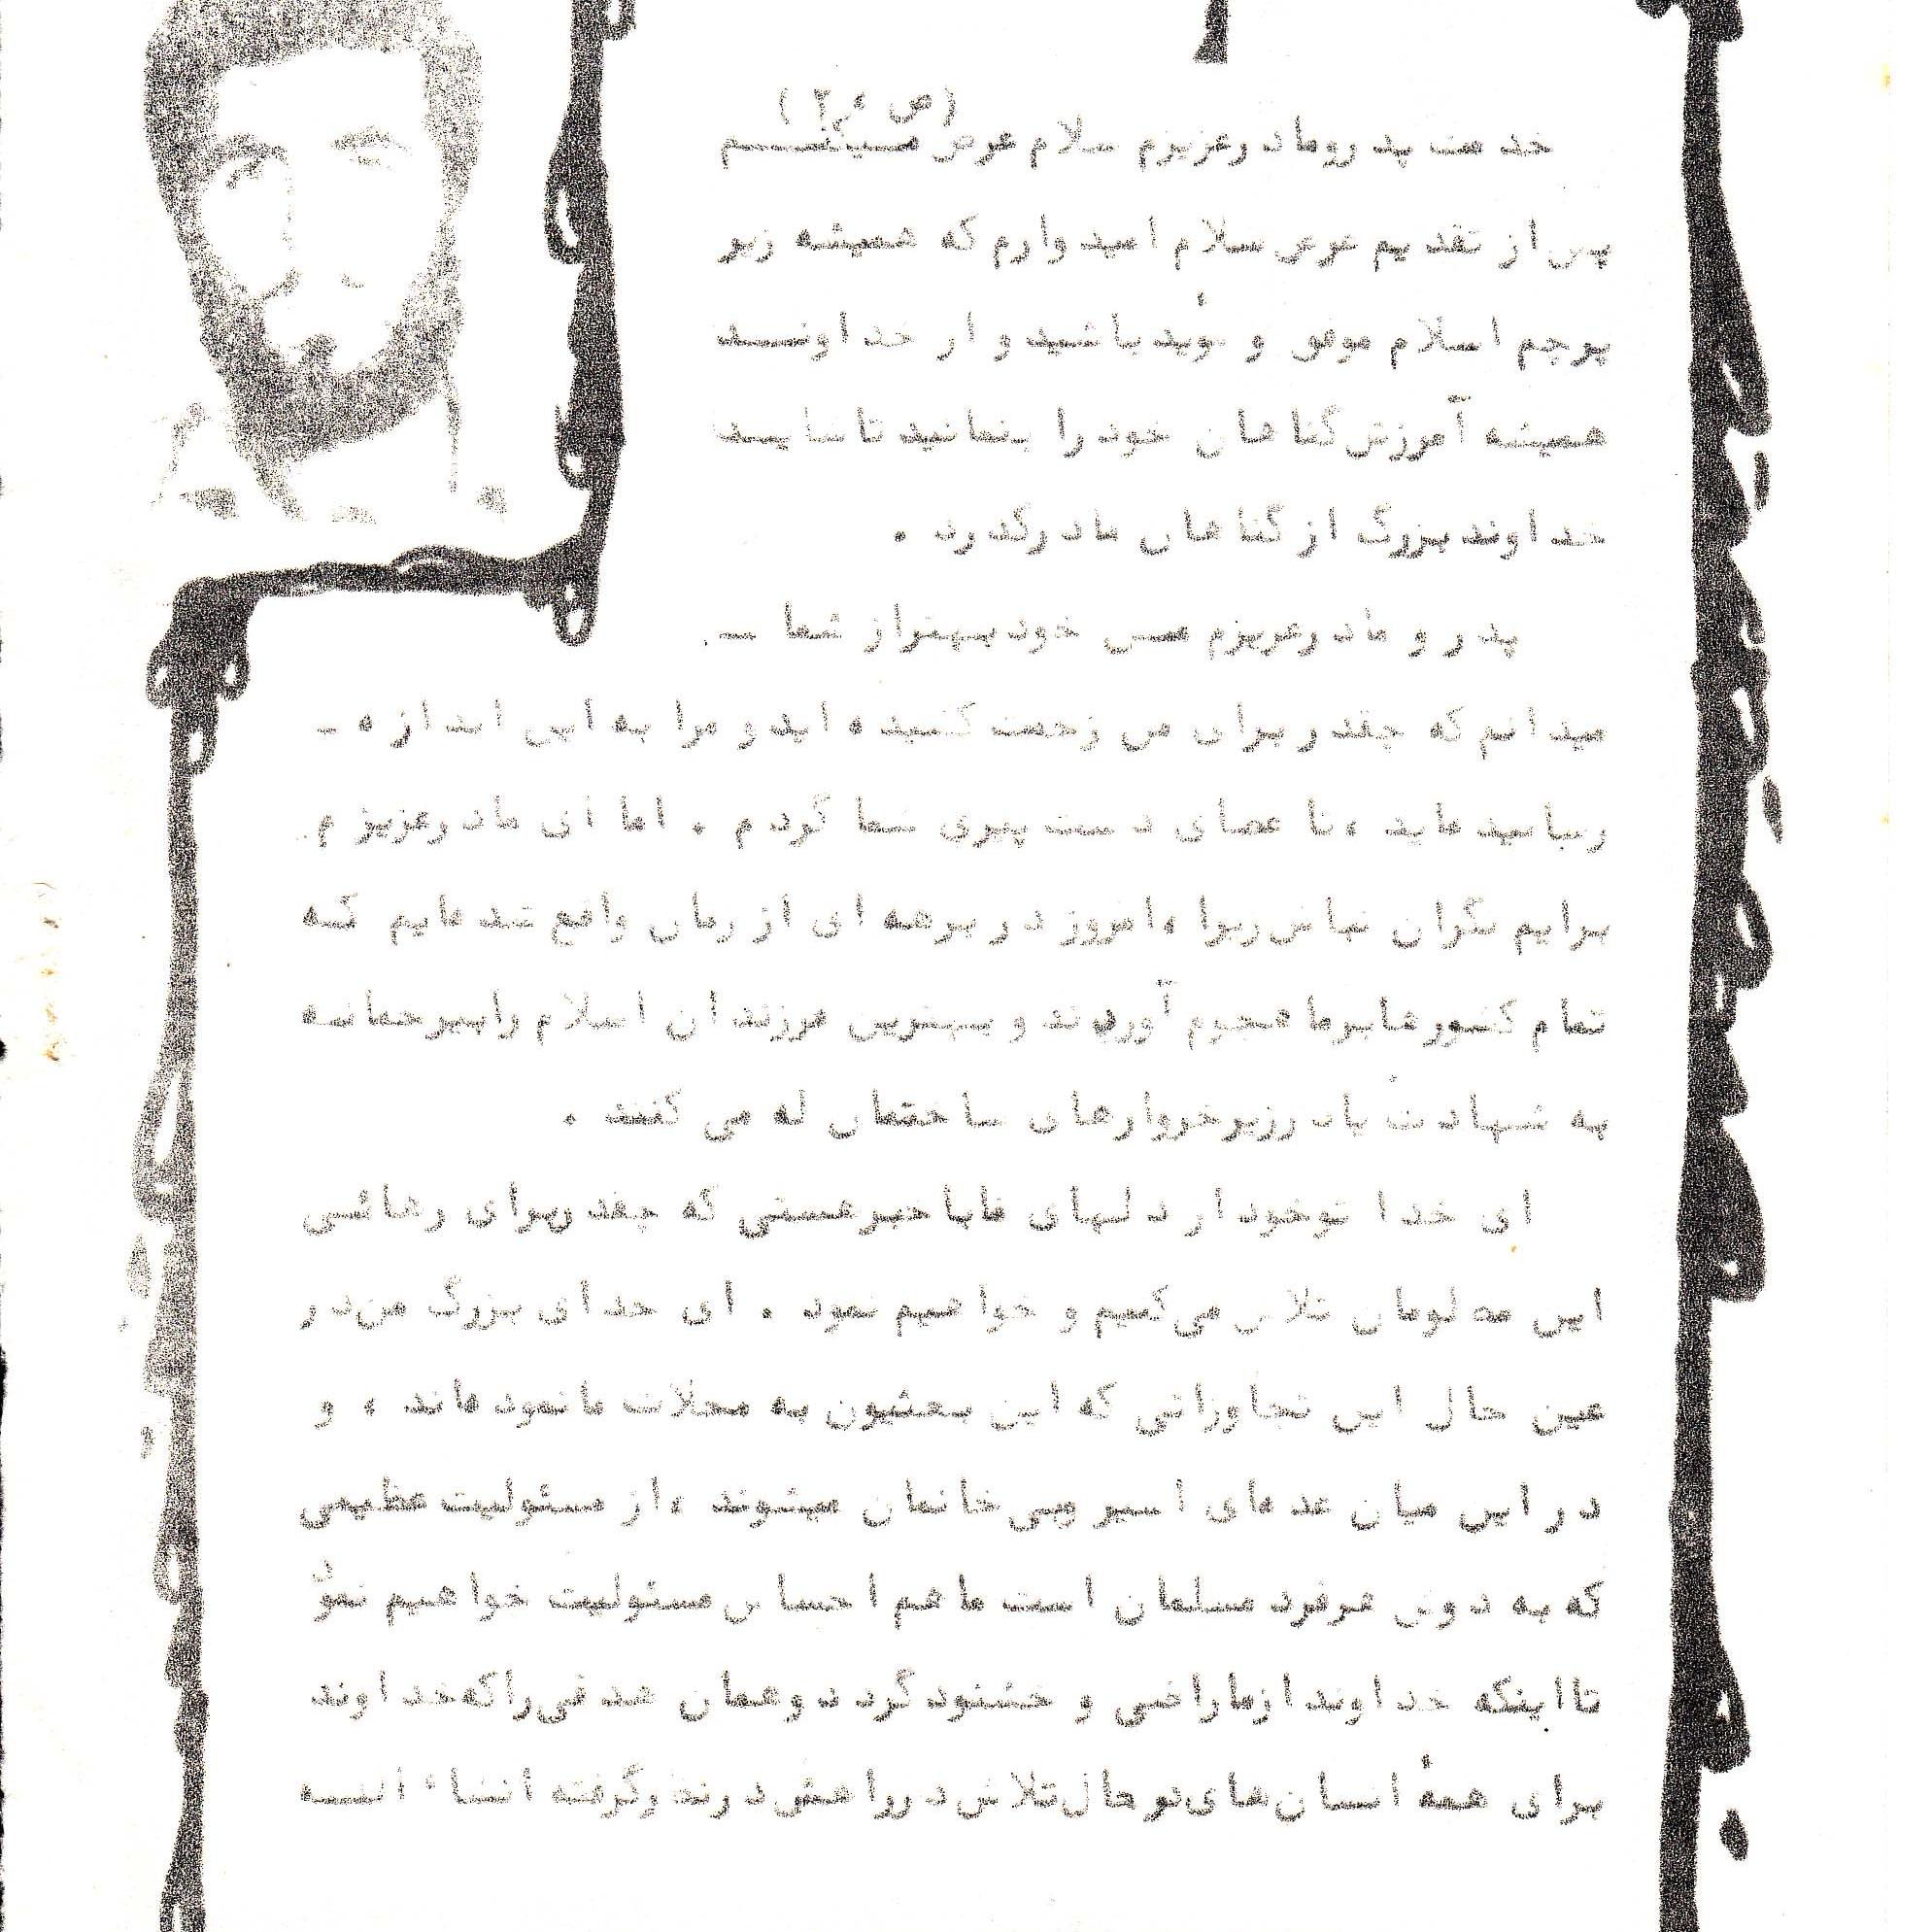 (ص ۲۰)
خدمت پدرومادرعزیزم سلام عرض میکنم
پس از تقدیم عرض سلام امیدوارم که همیشه زیر
پرچم اسلام موفق و مؤیدباشیدو از خداونـــد
همیشه آمرزش گناهان خودرا بنمائید تاشایـد
خداوندبزرگ ازگناهان مادرگذرد .
پدر و مادرعزیزم من خودبهترازشما ـ
میدانم که چقدربرای من زحمت کشیده ایدو مرا به این اندازه ـ
رسانیده‌اید ،تا عصای دست پیری شما گردم . اما ای مادرعزیزم
برایم نگران نباش‌زیرا ،امروز در برهه ای از زمان واقع شده‌ایم که
تمام کشورهابرماهجوم آوردند و بهترین فرزندان اسلام رابیرحمانه
به شهادت یادرزیرخروارهای ساختمان له می کنند .
ای خدا توخود از دلهای ماباخبرهستی که چقدربرای رهائی
این مظلومان تلاش می‌کنیم و خواهیم نمود . ای خدای بزرگ من‌در
عین حال این تجاوزاتی که این بعثیون به محلات مانموده‌اند ، و
دراین میان عده‌ای اسیر وبی‌خانمان میشوند ،از مسئولیت عظیمی
که به دوش هرفرد مسلمان است ماهم احساس مسئولیت خواهیم نمود
تااینکه خداوندازماراضی و خشنودگردد وهمان هدفی‌راکه‌خداوند
برای همهٔ انسان‌های‌درحال‌تلاش‌درراهش‌درنظرگرفته انشاء الله